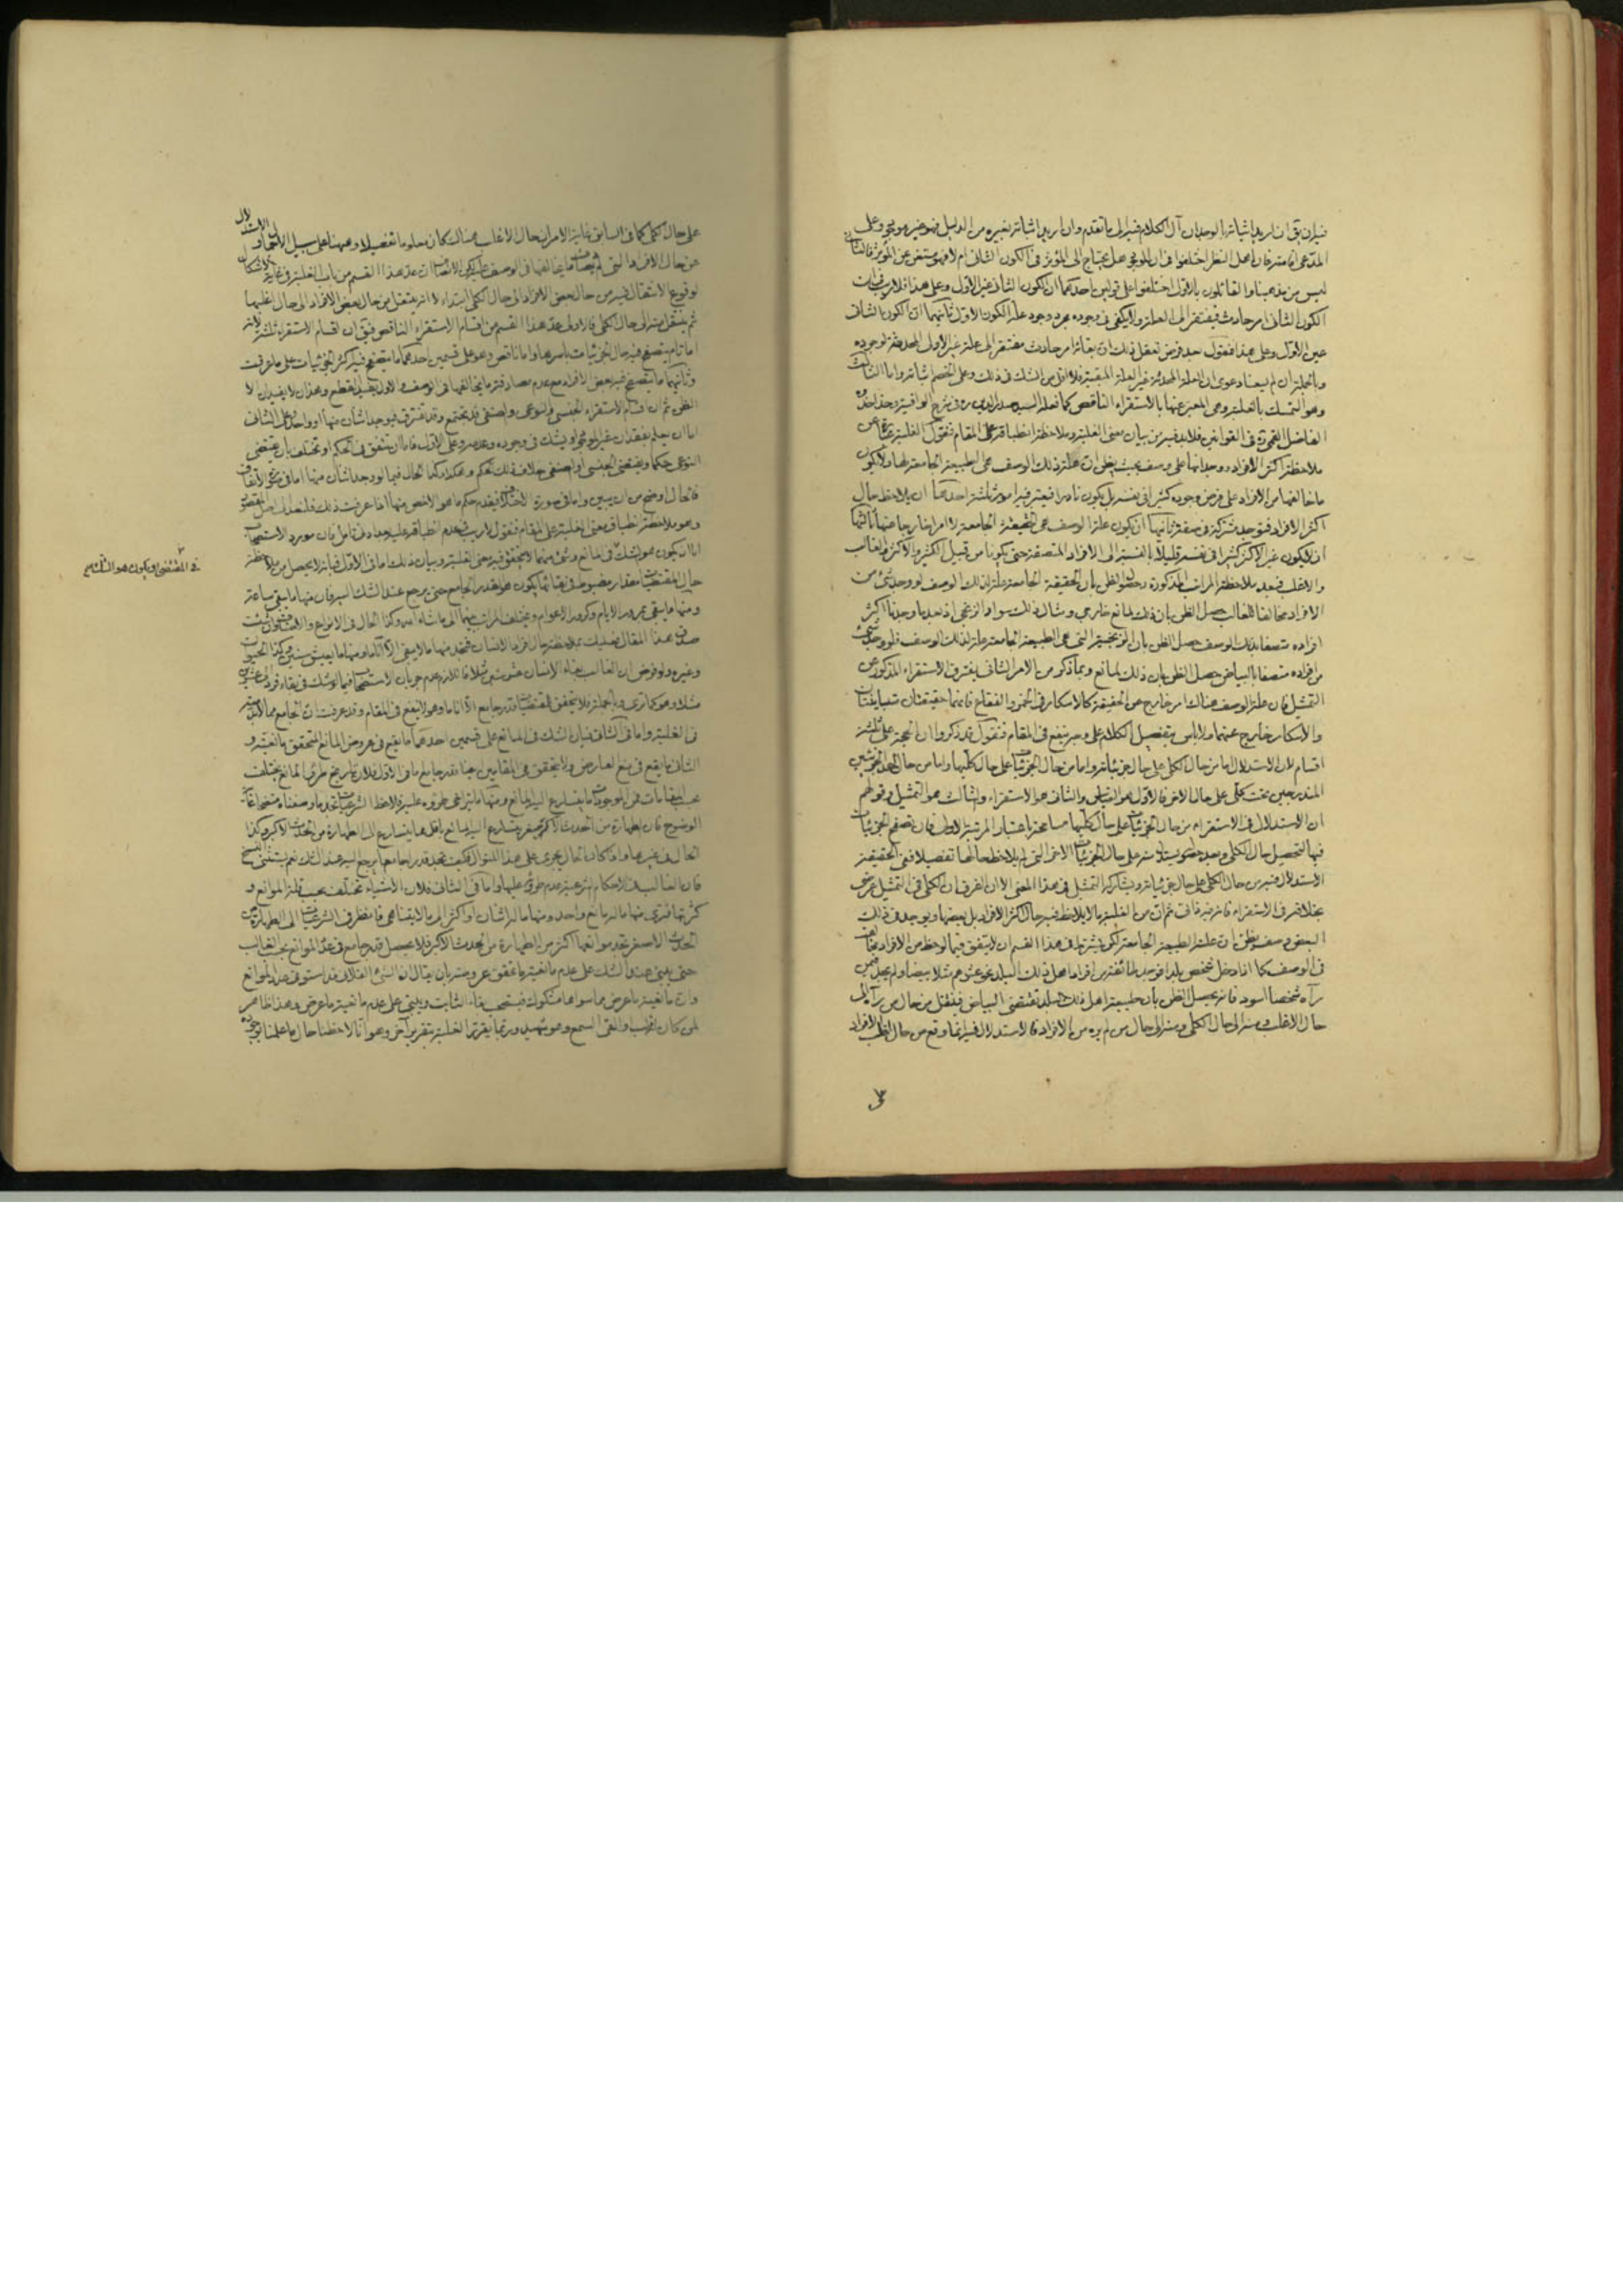 فيه ان يق ان اريد اثباته بالوجدان آل الكلام فيه الى ما تقدم وان اريد اثباته بغيره من الدليل فهو غير موجود وعلى
المدعى اقامته فان اهل النظر اختلفوا فى ان الموجود هل يحتاج الى المؤثر فى الكون الثانى ام لا فهو مستغن عن المؤثر فالثانى
ليس من مذهبنا والقائلون بالاول اختلفوا على قولين احدهما ان الكون الثانى غير الاول وعلى هذا فلا ريب فى ان
الكون الثانى امر حادث فيفتقر الى العلة ولا يكفى فى وجوده مجرد وجود علة الكون الاول ثانيهما ان الكون الثانى
عين الاول وعلى هذا فنقول بعد فرض تعقل ذلك ان بقائه امر حادث مفتقر الى علة غير الاولى المحدثة لوجوده
وبالجملة ان لم يسعنا دعوى ان العلة المحدثة غير العلة المبقية فلا اقل من الشك فى ذلك وعلى الخصم اثباته واما الثالث
وهو التمسك بالغلبة وهى المعبر عنها بالاستقراء الناقص كما نقله السيد صدر الدين ره فى شرح الوافية وحذا حذوه
الفاضل القمى ره فى القوانين فلا بد فيه من بيان معنى الغلبة وملاحظة انطباقه على المقام فنقول الغلبة عبارة عن
ملاحظة اكثر الافراد ووجدانها على وصف بحيث يظن ان علة ذلك الوصف هى الطبيعة الجامعة لها ولا يكون
ما خالفها من الافراد على فرض وجوده كثيرا فى نفسه بل يكون نادرا فيعتبر فيه امور ثلثة احدها ان يلاحظ حال
اكثر الافراد فتوجد مشتركة فى صفة ثانيها ان يكون علة الوصف هى الحقيقة الجامعة لا امرا خارجا عنها ثالثها
ان لا يكون غير الاكثر كثيرا فى نفسه قليلا بالنسبة الى الافراد المتصفة حتى يكونا من قبيل الكثير والاكثر والغالب
والاغلب فبعد ملاحظة المراتب المذكورة وحصول الظن بان الحقيقة الجامعة علة لذلك الوصف لو وجد شئ من
الافراد مخالفا للغالب حصل الظن بان ذلك لمانع خارجى ومثال ذلك سواد الزنجى اذ بعد ما وجدنا اكثر
افراده متصفا بذلك الوصف حصل الظن بان الزنجية التى هى الطبيعة الجامعة علة لذلك الوصف فلو وجد شئ
من افراده متصفا بالبياض حصل الظن بان ذلك لمانع وبما ذكر من الامر الثانى يفترق الاستقراء المذكور عن
التمثيل فان علة الوصف هناك امر خارج عن الحقيقة كالاسكار فى الخمر والفقاع فانهما حقيقتان متباينتان
والاسكار خارج عنهما ولا باس بتفصيل الكلام على وجه ينفع فى المقام فنقول قد ذكروا ان الحجة على ثلثة
اقسام لان الاستدلال اما من حال الكلى على حال جزئياته واما من حال الجزئيات على حال كليها واما من حال احد الجزئيين
المندرجين تحت كلى على حال الاخر فالاول هو القياس والثانى هو الاستقراء والثالث هو التمثيل وقولهم
ان الاستدلال فى الاستقراء من حال الجزئيات على حال كليها مسامحة باعتبار المرتبة الاولى فان تصفح الجزئيات
فيها لتحصيل حال الكلى وبعد حصوله يستدل منه على حال الجزئيات الاخر التى لم يلاحظ حالها تفصيلا ففى الحقيقة
الاستدلال فيه من حال الكلى على حال جزئياته ويشاركه التمثيل فى هذا المعنى الا ان الفرق ان الكلى فى التمثيل عرضى
بخلافه فى الاستقراء فانه فيه ذاتى ثم ان من الغلبة ما لا يلاحظ فيه حال اكثر الافراد بل بعضها ويوجد فى ذلك
البعض وصف يظن ان علته الطبيعة الجامعة لكن يشترط فى هذا القسم ان لا يتفق فيما لوحظ من الافراد مخالف
فى الوصف كما اذا دخل شخص بلدا فوجد ما ئة نفر من افراد اهل ذلك البلد مثلا بيضا ولم يجد فيمن
رآه شخصا اسود فانه يحصل الظن بان طبيعة اهل ذلك البلد تقتضى البياض فينتقل من حال من رآه الى
حال الاغلب ومنه الى حال الكلى ومنه الى حال من لم يره من الافراد فالاستدلال فيه انما وقع من حال اغلب الافراد
على حال كلى كما فى السابق غاية الامر ان حال الاغلب هناك كان معلوما تفصيلا وههنا على سبيل الاجمال
من حال الافراد التى لم يصادف ما يخالفها فى الوصف على
لوقوع الانتقال فيه من حال بعض الافراد الى حال الكلى ابتداء لا انه ينتقل من حال بعض الافراد الى حال اغلبها
ثم ينتقل منه الى حال الكلى فالاولى عد هذا القسم من اقسام الاستقراء الناقص فيق ان اقسام الاستقراء ثلثة لانه
اما تام يتصفح فيه حال الجزئيات باسرها واما ناقص وهو على قسمين احدهما ما يتصفح فيه اكثر الجزئيات على ما عرفت
وثانيهما ما يتصفح فيه بعض الافراد مع عدم مصادفة ما يخالفها فى الوصف والاول يفيد القطع وهذان لا يفيدان الا
الظن ثم ان اقسام الاستقراء الجنسى والنوعى والصنفى قد تجتمع وقد تفترق فيوجد اثنان منها او واحد وعلى الثانى
اما ان يعلم بفقدان غير الموجود او يشك فى وجوده وعدمه وعلى الاول فاما ان يتفق فى الحكم او تختلف بان يقتضى
النوعى حكما ويقتضى الجنسى او الصنفى خلاف ذلك الحكم وهكذا وكذا الحال فيما لو وجد اثنان منها اما فى صورة الاتفاق
فالحال اوضح من ان يبين واما فى صورة الاختلاف فيقدم حكم ما هو الاخص منها اذا عرفت ذلك فلنعد الى اصل المقصود
وهو ملاحظة انطباق معنى الغلبة على المقام فنقول لا ريب فى عدم انطباقه عليه بعد ادنى تامل فان مورد الاستصحاب
اما ان يكون هو الشك فى المانع وشئ منهما لا يتحقق فيه معنى الغلبة وبيان ذلك اما فى الاول فبانه لا يحصل من ملاحظة
حال المقتضيات مقدار مضبوط فى بقائها يكون هو القدر الجامع حتى يرجع عند الشك اليه فان منها ما يبقى ساعة
ومنها ما يبقى بمرور الايام وكرور الاعوام ويختلف المراتب بينهما الى ما شاء الله وكذا الحال فى الانواع والاصناف فان شئت
صدق هذا المقال فعليك بملاحظة حال افراد الانسان فتجد منها ما لا يبقى الا آنا ما ومنها ما يعيش سنين وكذا الحيوان
وغيره ولو فرض ان الغالب بقاء الانسان عشر سنين مثلا فاللازم عدم جريان الاستصحاب فيما لو شك فى بقاء فرد الى عشرين
مثلا وهو كما ترى وبالجملة فلا يتحقق للمقتضيات قدر جامع الا آنا ما وهو لا ينفع فى المقام وقد عرفت ان الجامع مما لا بد منه
فى الغلبة واما فى الثانى فبان الشك فى المانع على قسمين احدهما ما يقع فى عروض المانع المتحقق مانعيته و
الثانى ما يقع فى منع العارض ولا يتحقق فى المقامين ايضا قدر جامع اما فى الاول فلان تاريخ طرو المانع يختلف
بحسب المقامات فمن الموجودات ما يتسارع اليه المانع ومنها ما يتراخى طروه عليه فلاحظ الشرعيات تجد ما وصفناه متضحا غاية
الوضوح فان الطهارة من الحدث الاصغر يتسارع اليها المانع باقل مما يتسارع الى الطهارة من الحدث الاكبر وكذا
الحال فى غيرها واذا كان الحال يجرى على هذا المنوال فكيف تجد قدرا جامعا يرجع اليه عند الشك نعم يستثنى النسخ
فان الغالب فى الاحكام الشرعية عدم طروه عليها واما فى الثانى فلان الاشياء تختلف بحسب قلة الموانع و
كثرتها فترى منها ما له مانع واحد ومنها ما له اثنان او اكثر الى ما لا يتناهى فانظر فى الشرعيات الى الطهارة من
الحدث الاصغر تجد موانعها اكثر من الطهارة من الحدث الاكبر فلا يحصل قدر جامع فى عدد الموانع بحسب الغالب
حتى يبنى عند الشك على عدم مانعية ما تحقق عروضه بان يقال ان الشئ الفلانى قد استوفى عدد الموانع
وان مانعية ما عرض مما سواها مشكوك فيستصحب بقاء الثابت ويبنى على عدم مانعية ما عرض وهذا ظاهر
لمن كان له قلب او القى السمع وهو شهيد وربما يقرر الغلبة بتقرير آخر وهو انا لاحظنا حال ما علمنا بوجوده
فى المقتضى او يكون هو الشك صح